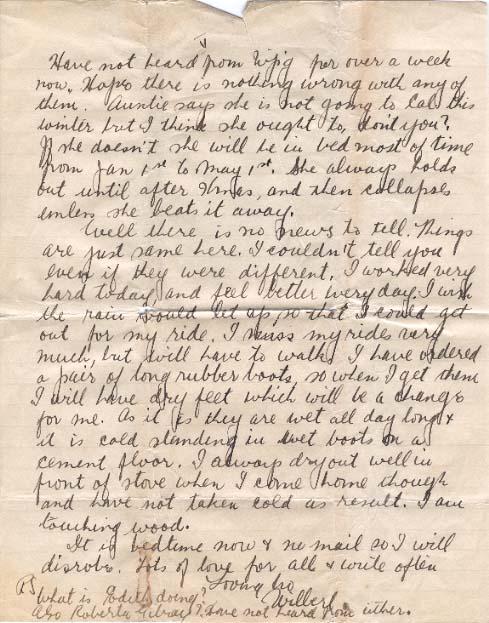 Have not heard from Wpg for over a week
now. Hope there is nothing wrong with any of
them. Auntie says she is not going to Cal this
winter but I think she ought to, don't you?
If she doesn't she will be in bed most of time
from Jan 1st to May 1st. She always holds
out until after Xmas, and then collapses
unless she beats it away.
Well there is no news to tell. Things
are just same here. I couldn't tell you
even if they were different. I worked very
hard today and feel better every day. I wish
the rain would let up so that I could get
out for my ride. I miss my rides very
much, but will have to walk. I have ordered
a pair of long rubber boots, so when I get them
I will have dry feet which will be a change
for me. As it is they are wet all day long &
it is cold standing in wet boots on a
cement floor. I always dry out well in
front of stove when I come home though
and have not taken cold as result. I am
touching wood.
It is bedtime now & no mail so I will
disrobe. Lots of love for all & write often
Loving bro
Wilbert
PS What is Edith doing?
Also Roberta Gilray? Have not heard from either.